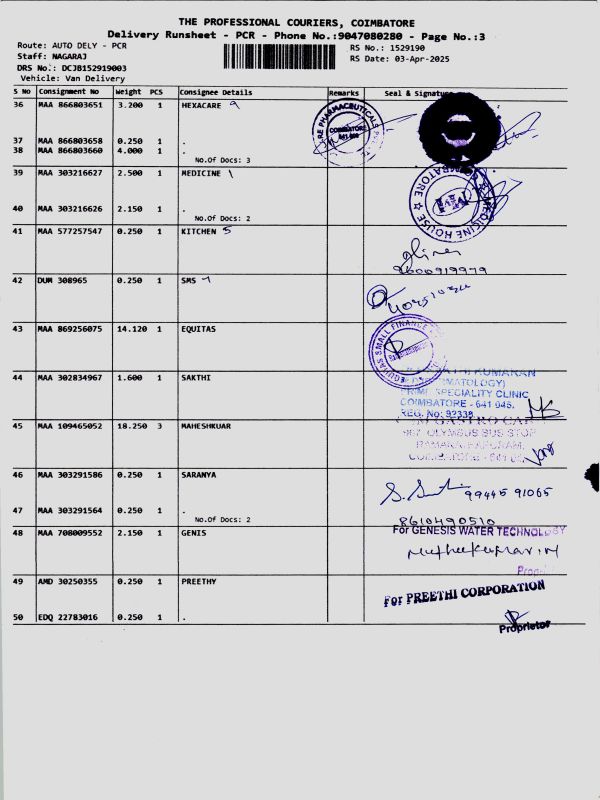 THE PROFESSIONAL COURIERS, COIMBATORE
Delivery Runsheet - PCR - Phone No.:9047080280 - Page No.:3
Route: AUTO DELY - PCR
RS No.: 1529190
Staff: NAGARAJ
RS Date: 03-Apr-2025
DRS No.: DCJB152919003
Vehicle: Van Delivery
S No Consignment No Weight PCS Consignee Details Remarks Seal & Signature
36 MAA 866803651 3.200 1 HEXACARE 9
37 MAA 866803658 0.250 1 .
38 MAA 866803660 4.000 1 .
No.Of Docs: 3
PHARMACEUTICALS
COIMBATORE
39 MAA 303216627 2.500 1 MEDICINE \
40 MAA 303216626 2.150 1 .
No.Of Docs: 2
MEDICINE HOUSE ☆ COIMBATORE
41 MAA 577257547 0.250 1 KITCHEN 5
9600919979
42 DUM 308965 0.250 1 SMS 7
43 MAA 869256075 14.120 1 EQUITAS
EQUITAS SMALL FINANCE
44 MAA 302834967 1.600 1 SAKTHI
KUMARAN
PRIME SPECIALITY CLINIC
COIMBATORE - 641 045.
REG. No: 92338
45 MAA 109465052 18.250 3 MAHESHKUAR
GASTRO CARE
OLYMPUS BUS STOP
46 MAA 303291586 0.250 1 SARANYA
99445 91065
47 MAA 303291564 0.250 1 .
No.Of Docs: 2
8610490510
48 MAA 708009552 2.150 1 GENIS
For GENESIS WATER TECHNOLOGY
49 AMD 30250355 0.250 1 PREETHY
For PREETHI CORPORATION
50 EDQ 22783016 0.250 1 .
Proprietor